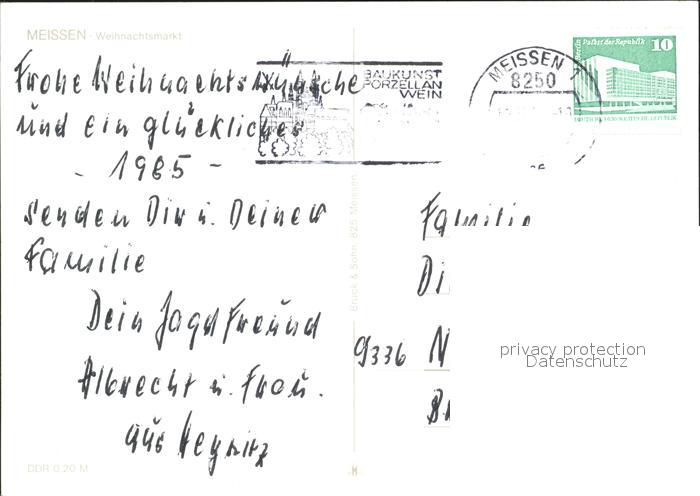 MEISSEN · Weihnachtsmarkt
Frohe Weihnachtswünsche
und ein glückliches
- 1985 -
senden Dir u. Deiner
Familie
Dein Jagdfreund
Albrecht u. Frau.
aus
DDR 0,20 M
Bruck & Sohn, 825 Meissen
BAUKUNST
PORZELLAN
WEIN
MEISSEN 1
8250
Berlin Palast der Republik 10
DEUTSCHE DEMOKRATISCHE REPUBLIK
Familie
Di
9336 N
privacy protection
Datenschutz